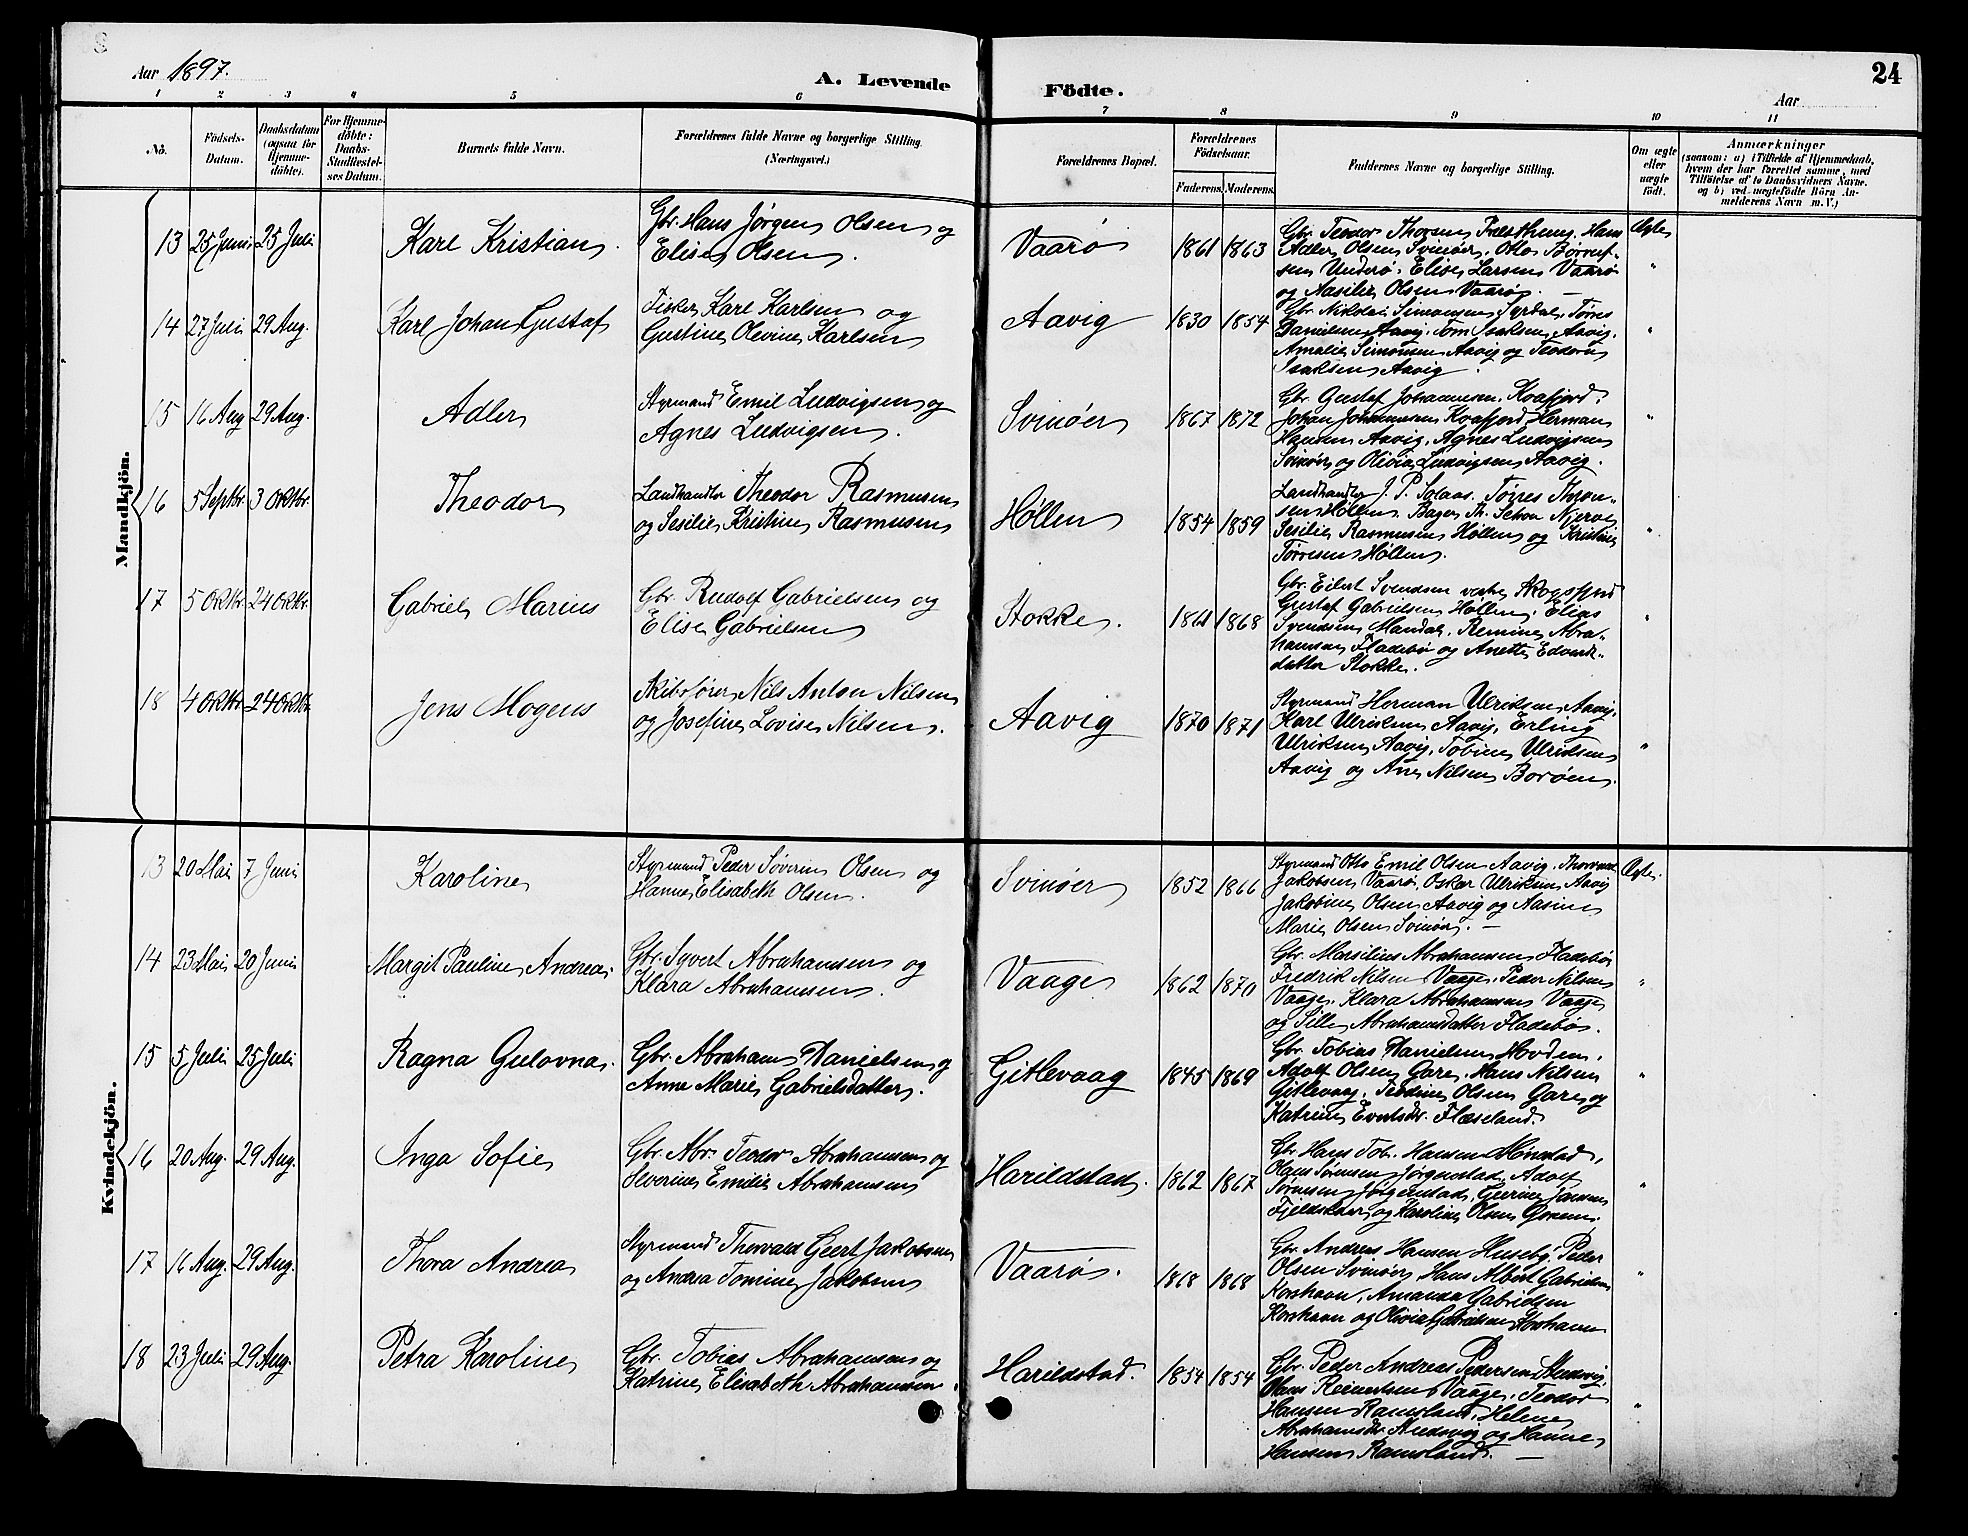 Aar 1897.
A. Levende Födte.
24
Aar
1 2 3 4 5 6 7 8 9 10 11
No.
Födsels-
Datum.
Daabsdatum
(ogsaa for
Hjemme-
døbte).
For Hjemme-
døbte:
Daabs-
Stadfæstel-
ses Datum.
Barnets fulde Navn.
Forældrenes fulde Navne og borgerlige Stilling.
(Næringsvei.)
Forældrenes Bopæl.
Forældrenes
Födselsaar.
Faderens. Moderens.
Faddernes Navne og borgerlige Stilling.
Om ægte
eller
uægte
født.
Anmærkninger
(saasom: a) i Tilfælde af Hjemmedaab,
hvem der har forrettet samme, med
Tilføielse af to Daabsvidners Navne,
og b) ved uægtefødte Börn An-
melderens Navn m. V.)
Mandkjön.
13 25 Juni 25 Juli
Karl Kristian.
Gbr. Hans Jørgen Olsen og
Elise Olsen.
Vaarø
1861 1863
Gbr. Teodor Thorsen Hans
Adler Olsen Svinøer, Otto
Underø. Elise Larsen Vaarø
og Aasilie Olsen Vaarø. —
Ægte
14 27 Juli 29 Aug.
Karl Johan Gustaf
Fisker Karl Karlsen og
Gustine Olevine Karlsen
Aavig
1830 1854
Gbr. Nikolai Simonsen Syrdal, Tørres
Danielsen Aavig. Tom Isaksen Aavig.
Amalie Simonsen Aavig og Teodora
Isaksen Aavig.
"
15 16 Aug 29 Aug.
Adler
Styrmand Emil Ludvigsen og
Agnes Ludvigsen.
Svinøer
1867 1872
Gbr. Gustaf Johannesen. Kvafjord.
Johan Johannesen Kvafjord Herman
Hansen Aavig, Agnes Ludvigsen
Svinør og Olivia Ludvigsen Aavig.
"
16 5 Septbr. 3 Oktbr.
Theodor
Landhandler Theodor Rasmusen
og Sesilie Kristine Rasmusen
Høllen
1854 1859
Landhandler J. P. Solaas. Tørres
Høllen. Bager Th. Schou Njerve
Sesilie Rasmusen Høllen og Kristine
Tørresen Høllen.
"
17 5 Oktbr. 24 Oktbr.
Gabriel Marius
Gbr. Rudolf Gabrielsen og
Elise Gabrielsen
Stokke.
1861 1868
Gbr. Eilert Svendsen vestre Skogsfjord
Gustaf Gabrielsen Høllen. Elias
Svendsen Mandal. Remine Abra-
hamsen Fladebø og Anette
datter Stokke.
"
18 4 Oktbr. 24 Oktbr.
Jens Mogens
Skibsfører Nils Anton Nilsen
og Josefine Lovise Nilsen.
Aavig
1870 1871
Styrmand Herman Ulriksen Aavig.
Karl Ulriksen Aavig, Erling
Ulriksen Aavig, Tobine Ulriksen
Aavig og Ane Nilsen Borøen.
"
Kvindekjön.
13 20 Mai 7 Juni
Karoline
Styrmand Peder Søverin Olsen og
Hanne Elisabeth Olsen.
Svinøer
1852 1866
Styrmand Otto Emil Olsen Aavig.
Jakobsen Vaarø, Oskar Ulriksen Aavig
Jakobine Olsen Aavig og Aasine
Marie Olsen Svinør. —
Ægte.
14 23 Mai 20 Juni
Margit Pauline Andrea.
Gbr. Syvert Abrahamsen og
Klara Abrahamsen.
Vaage
1862 1870
Gbr. Marsilius Abrahamsen Fladebø
Fredrik Nilsen Vaage, Peder Nilsen
Vaage. Klara Abrahamsen Vaage
og Sille Abrahamsdatter Fladebø.
"
15 5 Juli 25 Juli
Ragna Gulovna.
Gbr. Abraham Danielsen og
Anne Marie Gabrielsdatter.
Gitlevaag
1845 1869
Gbr. Tobias Danielsen Hovden.
Adolf Olsen Gare. Hans Nilsen
Gitlevaag. Teodine Olsen Gare og
Katrine Evertsdr. Flæseland.
"
16 20 Aug. 29 Aug.
Inga Sofie
Gbr. Abr. Teodor Abrahamsen og
Severine Emilie Abrahamsen
Harildstad.
1862 1867
Gbr. Hans Tob. Hansen Mønstad,
Olaus Sørensen Jørgenstad. Adolf
Sørensen Jørgenstad, Jansen
Fjeldskaar og Karoline Olsen
"
17 16 Aug. 29 Aug.
Thora Andrea
Styrmand Thorvald Geert Jakobsen
og Andrea Tomine Jakobsen
Vaarø.
1868 1868
Gbr. Andreas Hansen Huseby. Peder
Olsen Svinøer Hans Albert Gabrielsen
Korshavn, Amanda Gabrielsen
Korshavn og Olivia Gabrielsen Korshavn
"
18 23 Juli 29 Aug.
Petra Karoline
Gbr. Tobias Abrahamsen og
Katrine Elisabeth Abrahamsen.
Harildstad.
1854 1854
Gbr. Peder Andreas Pedersen Studevig,
Olaus Reinertsen Vaage, Teodor
Hansen Ramsland, Helene
Abrahamsdr. Studevig og Hanne
Hansen Ramsland. —
"